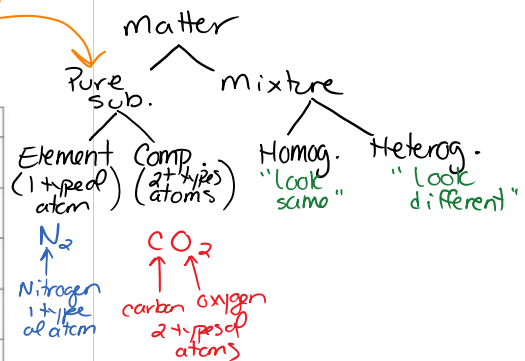 Matter
Pure
sub.
Mixture
Element
(1 type of
atom)
Comp.
(2+ types
atoms)
Homog.
"look
same"
Heterog.
"look
different"
N₂
Nitrogen
1 type
of atom
CO₂
carbon oxygen
2 types of
atoms